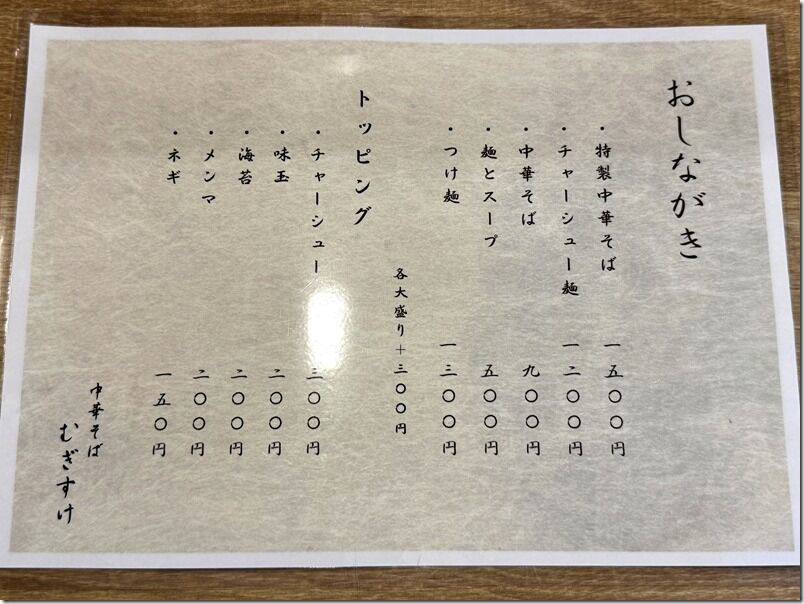 おしながき
・特製中華そば 一五〇〇円
・チャーシュー麺 一二〇〇円
・中華そば 九〇〇円
・麺とスープ 五〇〇円
・つけ麺 一三〇〇円
各大盛り+三〇〇円
トッピング
・チャーシュー 三〇〇円
・味玉 二〇〇円
・海苔 二〇〇円
・メンマ 二〇〇円
・ネギ 一五〇円
中華そば
むぎすけ